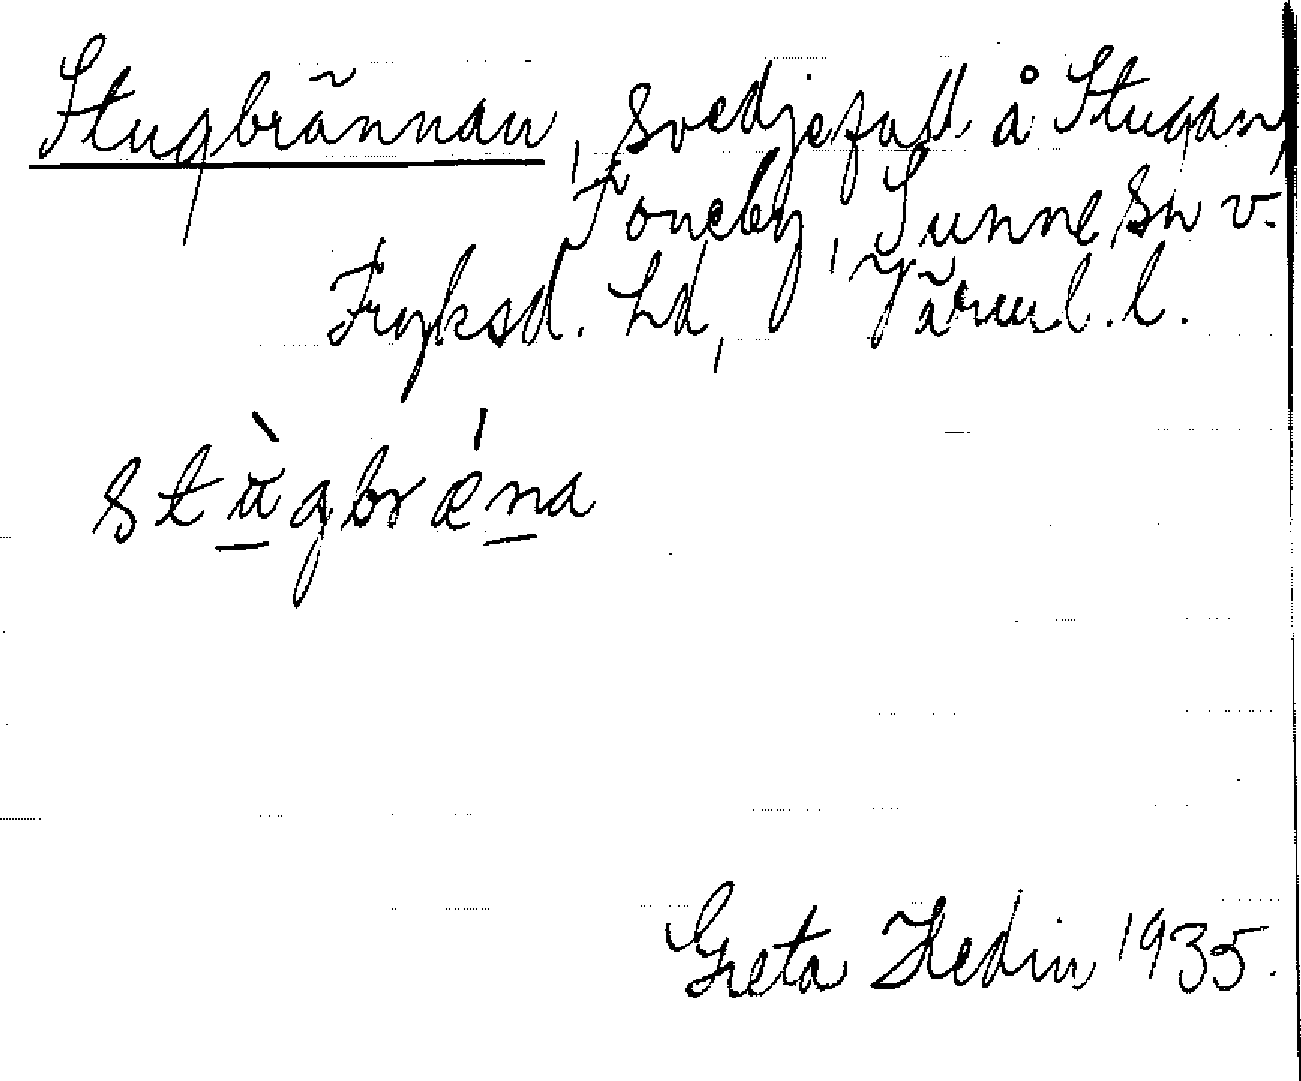 Stugbrännan, svedjefall å Stugan,
Toneby, Sunne sn v.
Fryksd. hd, Värml. l.
stùgbrǽna
Greta Hedin 1935.